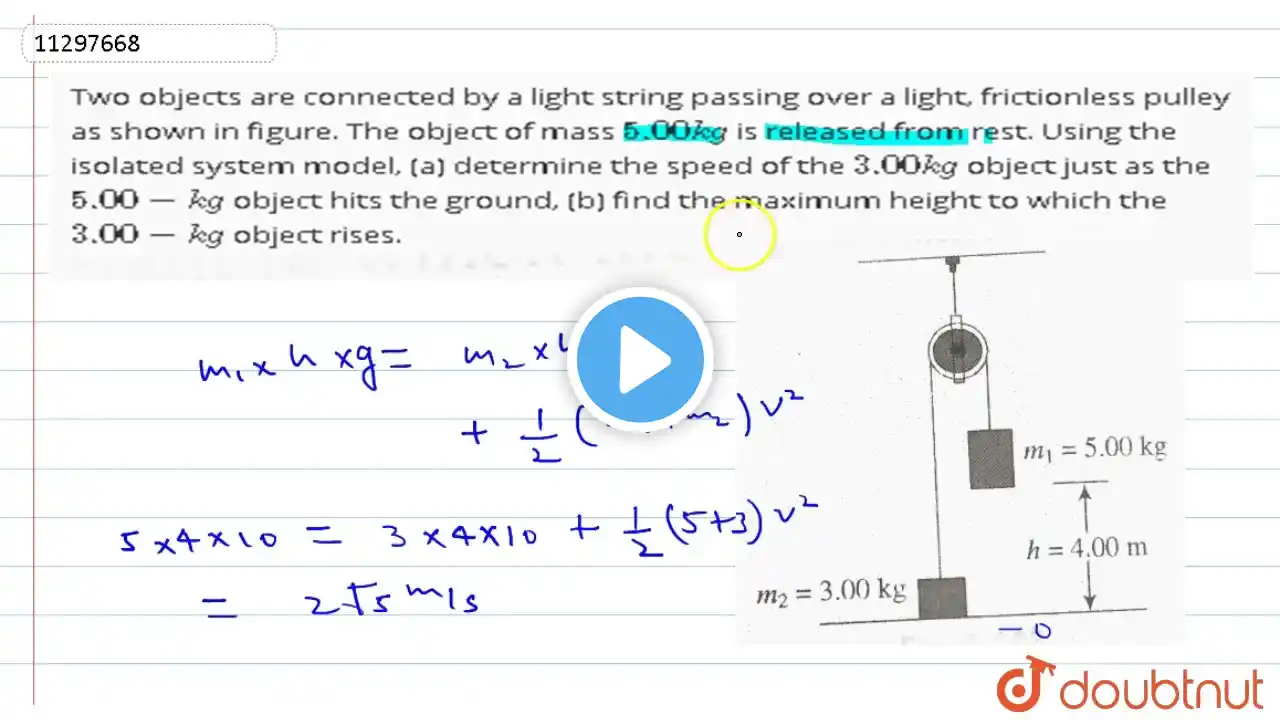 11297668
Two objects are connected by a light string passing over a light, frictionless pulley
as shown in figure. The object of mass 5.00kg is released from rest. Using the
isolated system model, (a) determine the speed of the 3.00kg object just as the
5.00 − kg object hits the ground, (b) find the maximum height to which the
3.00 − kg object rises.
m₁ x h x g = m₂ x
+ 1/2 ( m₂) v²
5 x 4 x 10 = 3 x 4 x 10 + 1/2 (5+3) v²
= 2√5 m/s
m₁ = 5.00 kg
h = 4.00 m
m₂ = 3.00 kg
− 0
doubtnut